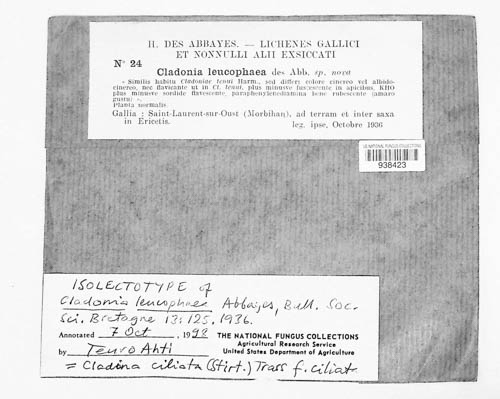 H. DES ABBAYES. — LICHENES GALLICI
ET NONNULLI ALII EXSICCATI
N° 24
Cladonia leucophaea des Abb. sp. nova
« Similis habitu Cladoniae tenui Harm., sed differt colore cinereo vel albido-
cinereo, nec flavicante ut in Cl. tenui, plus minusve fuscescente in apicibus, KHO
plus minusve sordide flavescente, paraphenylenediamina bene rubescente (amaro
gustu) ».
Planta normalis.
Gallia : Saint-Laurent-sur-Oust (Morbihan), ad terram et inter saxa
in Ericetis.
leg. ipse, Octobre 1936
US NATIONAL FUNGUS COLLECTIONS
938423
ISOLECTOTYPE of
Cladonia leucophaea Abbayes, Bull. Soc.
Sci. Bretagne 13: 125. 1936.
Annotated 7 Oct, 1998
THE NATIONAL FUNGUS COLLECTIONS
Agricultural Research Service
by Teuvo Ahti
United States Department of Agriculture
= Cladina ciliata (Stirt.) Trass f. ciliata